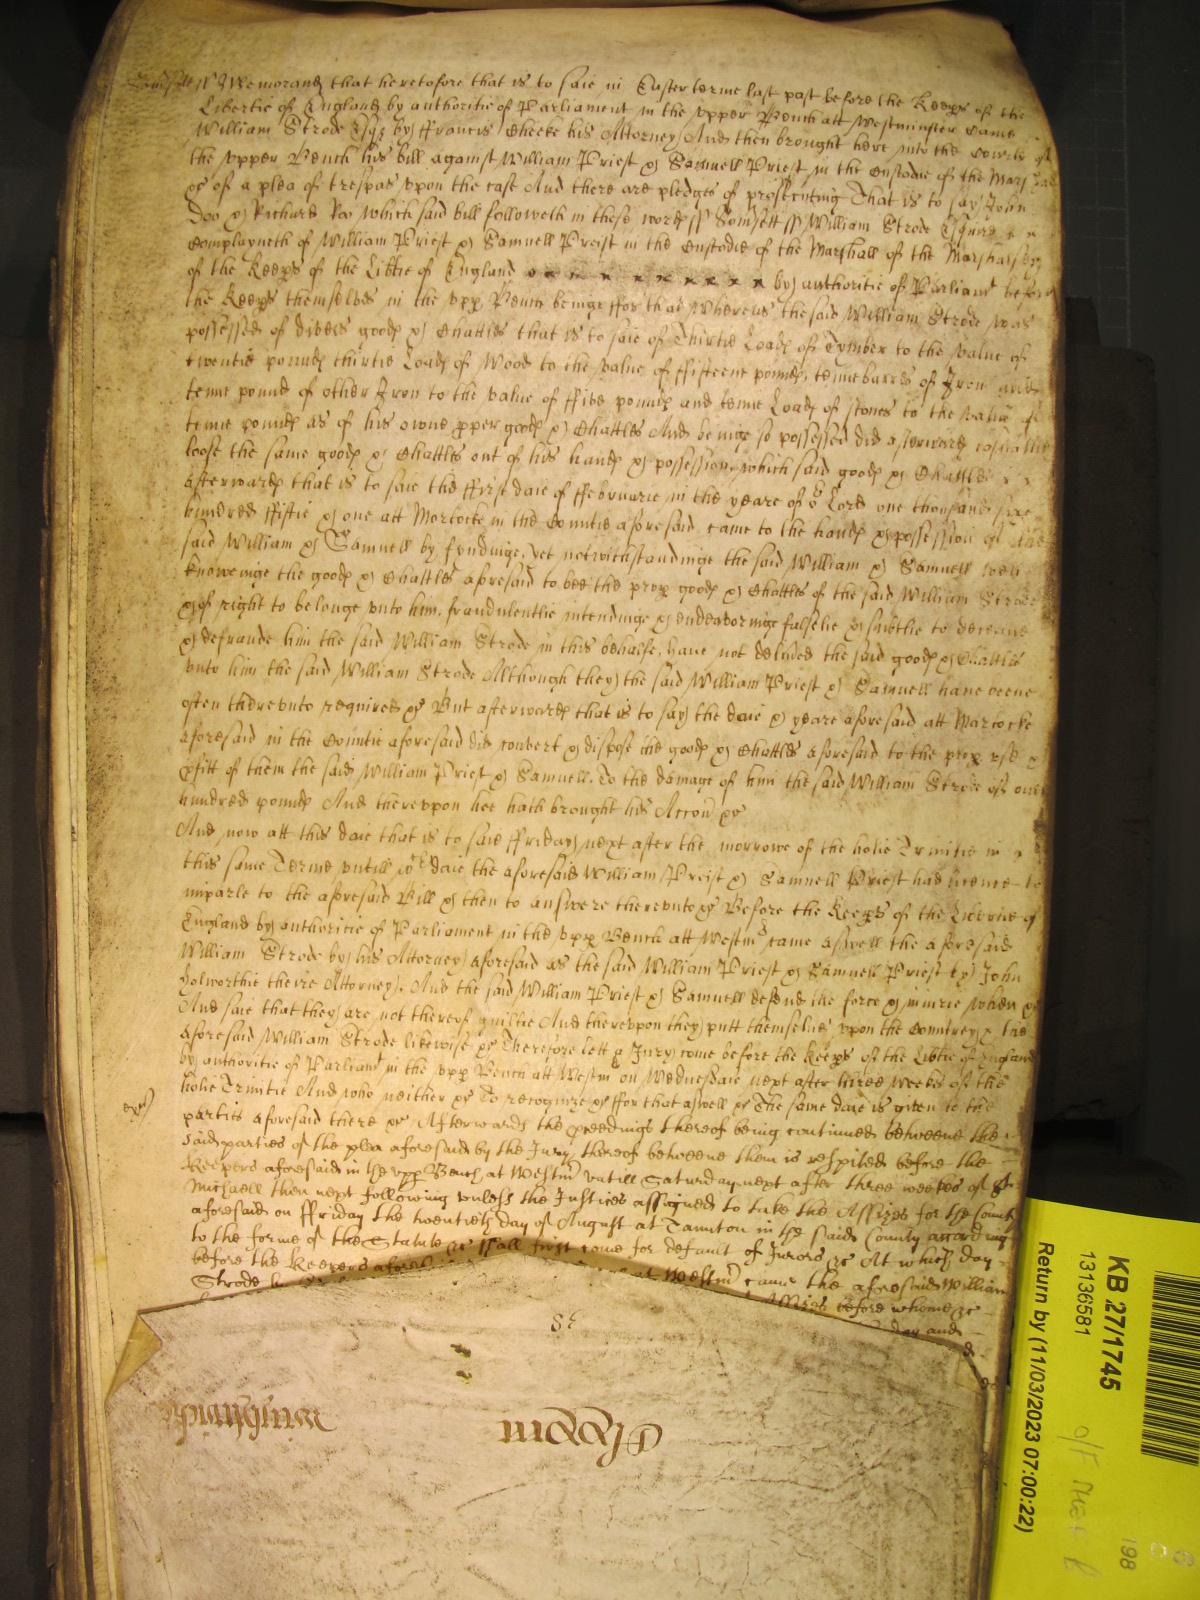 Somsett ss Memorand that heretofore that is to saie in Easter terme last past before the Keeps of the
Libertie of England by authoritie of Parliament in the upper Bench att Westminster Came
William Strode Esqr by ffrancis Cheeke his Attorney And then brought here into the Courte of
the upper Bench his bill against William Priest & Samuell Priest in the Custodie of the Marshall
&c of a plea of trespas upon the case And there are pledges of prosecuting That is to say John
Doo & Richard Roo which said bill followeth in these words ss Somsett ss William Strode Esquire x x
Complayneth of William Priest & Samuell Preist in the Custodie of the Marshall of the Marshalsey
of the Keeps of the Libtie of England x x x x x x x x x x by authoritie of Parliamt before
the Keeps themselves in the upp Bench beinge ffor that Whereas the said William Strode was
possessed of divers goods & Chattles that is to saie of Thirtie Loads of Tymber to the value of
twentie pounds thirtie Loads of Wood to the value of ffifteene pounds, tenne barres of Iron and
tenne pound of other Iron to the value of ffive pounds and tenne Loads of stones to the value of
tenne pounds as of his owne pper goods & Chattles And beinge so possessed did afterwards casuallie
loose the same goods & Chattles out of his hands & possession, which said goods & Chattles x x
afterwards that is to saie the ffirst daie of ffebruarie in the yeare of or Lord one thousand sixe
hundred ffiftie & one att Martocke in the Countie aforesaid came to the hands & possession of the
said William & Samuell by fyndinge, yet notwithstandinge the said William & Samuell well
knoweinge the goods & Chattles aforesaid to bee the prop goods & Chattles of the said William Strode
& of right to belonge unto him, fraudulentlie intendinge & endeavoringe falslie & subtlie to deceave
& defraude him the said William Strode in this behalfe, have not delived the said goods & Chattles
unto him the said William Strode Although they the said William Priest & Samuell have beene
often thereunto required &c But afterwards that is to say the daie & yeare aforesaid att Martocke
aforesaid in the Countie aforesaid did convert & dispose the goods & Chattles aforesaid to the prop use &
pfitt of them the said William Priest & Samuell, To the damage of him the said William Strode of one
hundred pounds And thereupon hee hath brought his Accon &c
And now att this daie that is to saie ffriday next after the morrowe of the holie Trinitie in x
this same Terme untill wch daie the aforesaid William Preist & Samuell Priest had licence to
imparle to the aforesaid Bill & then to answere thereunto &c Before the Keeps of the Libertie of
England by authoritie of Parliament in the upp Bench att Westmr came aswell the aforesaid
William Strode by his Attorney aforesaid as the said William Priest & Samuell Priest by John
Holworthie theire Attorney. And the said William Priest & Samuell defend the force & iniurie when &c
And saie that they are not thereof guiltie And thereupon they putt themselves upon the Countrey & the
aforesaid William Strode likewise &c Therefore lett a Jury come before the Keeps of the Libtie of England
by authoritie of Parliamt in the upp Bench att Westmr on Wednesdaie next after three weeks of the
holie Trinitie And who neither &c To recognize &c ffor that aswell &c The same daie is given to the
parties aforesaid there &c Afterwards the pceedings thereof being continued betweene the
said parties of the plea aforesaid by the Jury thereof betweene them is respited before the
Keepers aforesaid in the upp Bench at Westmr untill Saturday next after three weekes of St
Michaell then next following unless the Justices assigned to take the Assizes for the County
aforesaid on ffriday the twentieth day of August at Taunton in the said County according
to the forme of the Statute &c shall first come for default of Jurors &c At which day
before the Keepers at Westmr came the aforesaid William
Strode Assizes before whome &c
day and
KB 27/1745
13136581
Return by (11/03/2023 07:00:22)
198